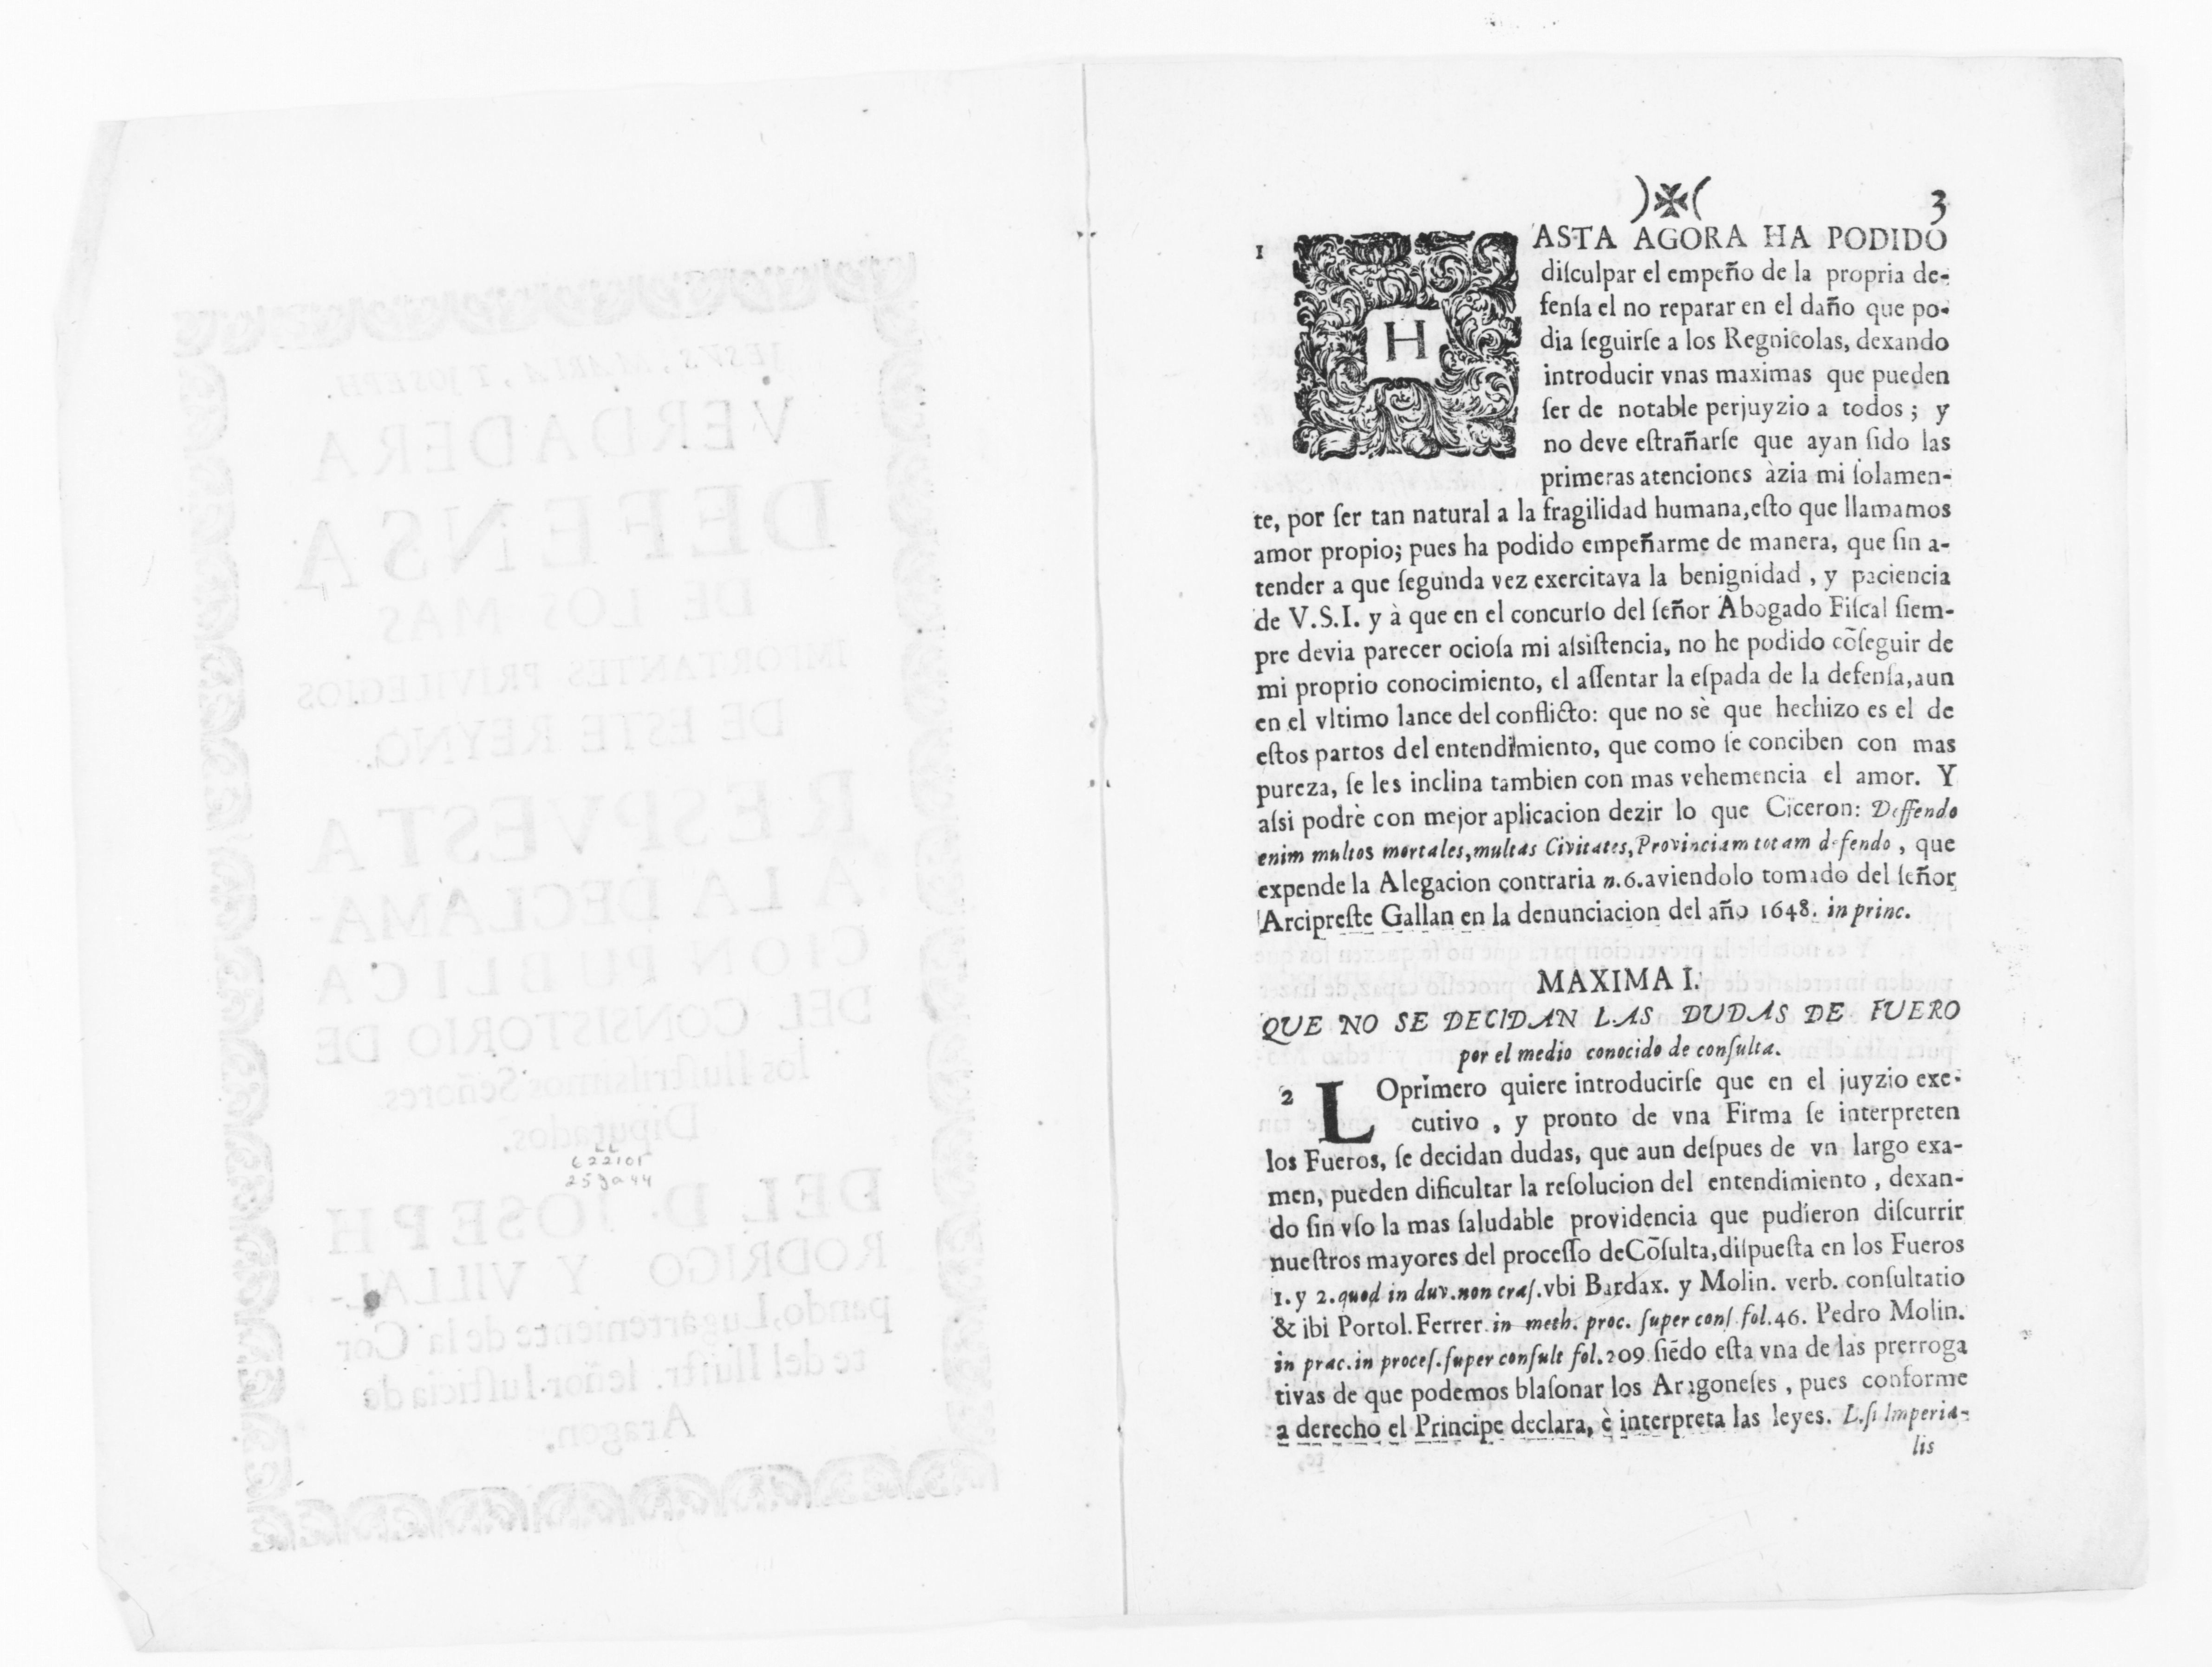 JESVS, MARIA, Y JOSEPH.
VERDADERA
DEFENSA
DE LOS MAS
IMPORTANTES PRIVILEGIOS
DE ESTE REYNO.
RESPVESTA
A LA DECLAMA-
CION PUBLICA
DEL CONSISTORIO DE
los Iluſtriſsimos Señores
Diputados,
622101
259a44
DEL D. JOSEPH
RODRIGO Y VILLAL-
pando, Lugarteniente de la Cor
te del Iluſtr. ſeñor Iuſticia de
Aragon.
)✠( 3
1 HASTA AGORA HA PODIDO
diſculpar el empeño de la propria de-
fenſa el no reparar en el daño que po-
dia ſeguirſe a los Regnicolas, dexando
introducir vnas maximas que pueden
ſer de notable perjuyzio a todos; y
no deve eſtrañarſe que ayan ſido las
primeras atenciones àzia mi ſolamen-
te, por ſer tan natural a la fragilidad humana, eſto que llamamos
amor propio; pues ha podido empeñarme de manera, que ſin a-
tender a que ſegunda vez exercitava la benignidad, y paciencia
de V.S.I. y à que en el concurſo del ſeñor Abogado Fiſcal ſiem-
pre devia parecer ocioſa mi aſsiſtencia, no he podido cõſeguir de
mi proprio conocimiento, el aſſentar la eſpada de la defenſa, aun
en el vltimo lance del conflicto: que no sè que hechizo es el de
eſtos partos del entendimiento, que como ſe conciben con mas
pureza, ſe les inclina tambien con mas vehemencia el amor. Y
aſsi podrè con mejor aplicacion dezir lo que Ciceron: Deffendo
enim multos mortales, multas Civitates, Provinciam totam defendo, que
expende la Alegacion contraria n.6. aviendolo tomado del ſeñor
Arcipreſte Gallan en la denunciacion del año 1648. in princ.
MAXIMA I.
QUE NO SE DECIDAN LAS DUDAS DE FUERO
por el medio conocido de conſulta.
2 LO primero quiere introducirſe que en el juyzio exe-
cutivo, y pronto de vna Firma ſe interpreten
los Fueros, ſe decidan dudas, que aun deſpues de vn largo exa-
men, pueden dificultar la reſolucion del entendimiento, dexan-
do ſin vſo la mas ſaludable providencia que pudieron diſcurrir
nueſtros mayores del proceſſo de Cõſulta, diſpueſta en los Fueros
1. y 2. quod in duv. non craſ. vbi Bardax. y Molin. verb. conſultatio
& ibi Portol. Ferrer. in meth. proc. ſuper conſ fol.46. Pedro Molin.
in prac. in proceſ. ſuper conſult fol.209. ſiẽdo eſta vna de las prerroga
tivas de que podemos blaſonar los Aragoneſes, pues conforme
a derecho el Principe declara, è interpreta las leyes. L. ſi Imperia-
lis